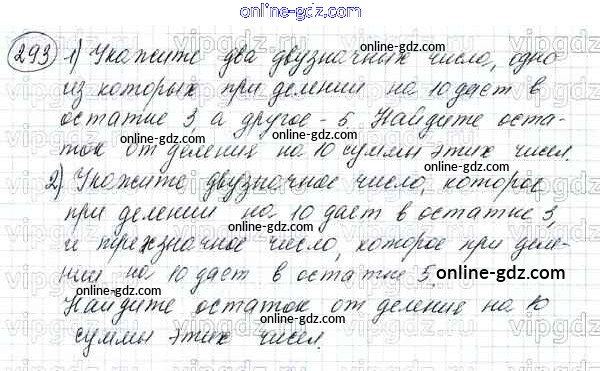 online-gdz.com
293 1) Укажите два двузначных числа, одно
из которых при делении на 10 дает в
остатке 3, а другое - 5. Найдите оста-
ток от деления на 10 суммы этих чисел.
2) Укажите двузначное число, которое
при делении на 10 дает в остатке 3,
и трехзначное число, которое при деле-
нии на 10 дает в остатке 5.
Найдите остаток от деления на 10
суммы этих чисел.
online-gdz.com
online-gdz.com
online-gdz.com
online-gdz.com
online-gdz.com
online-gdz.com
online-gdz.com
online-gdz.com